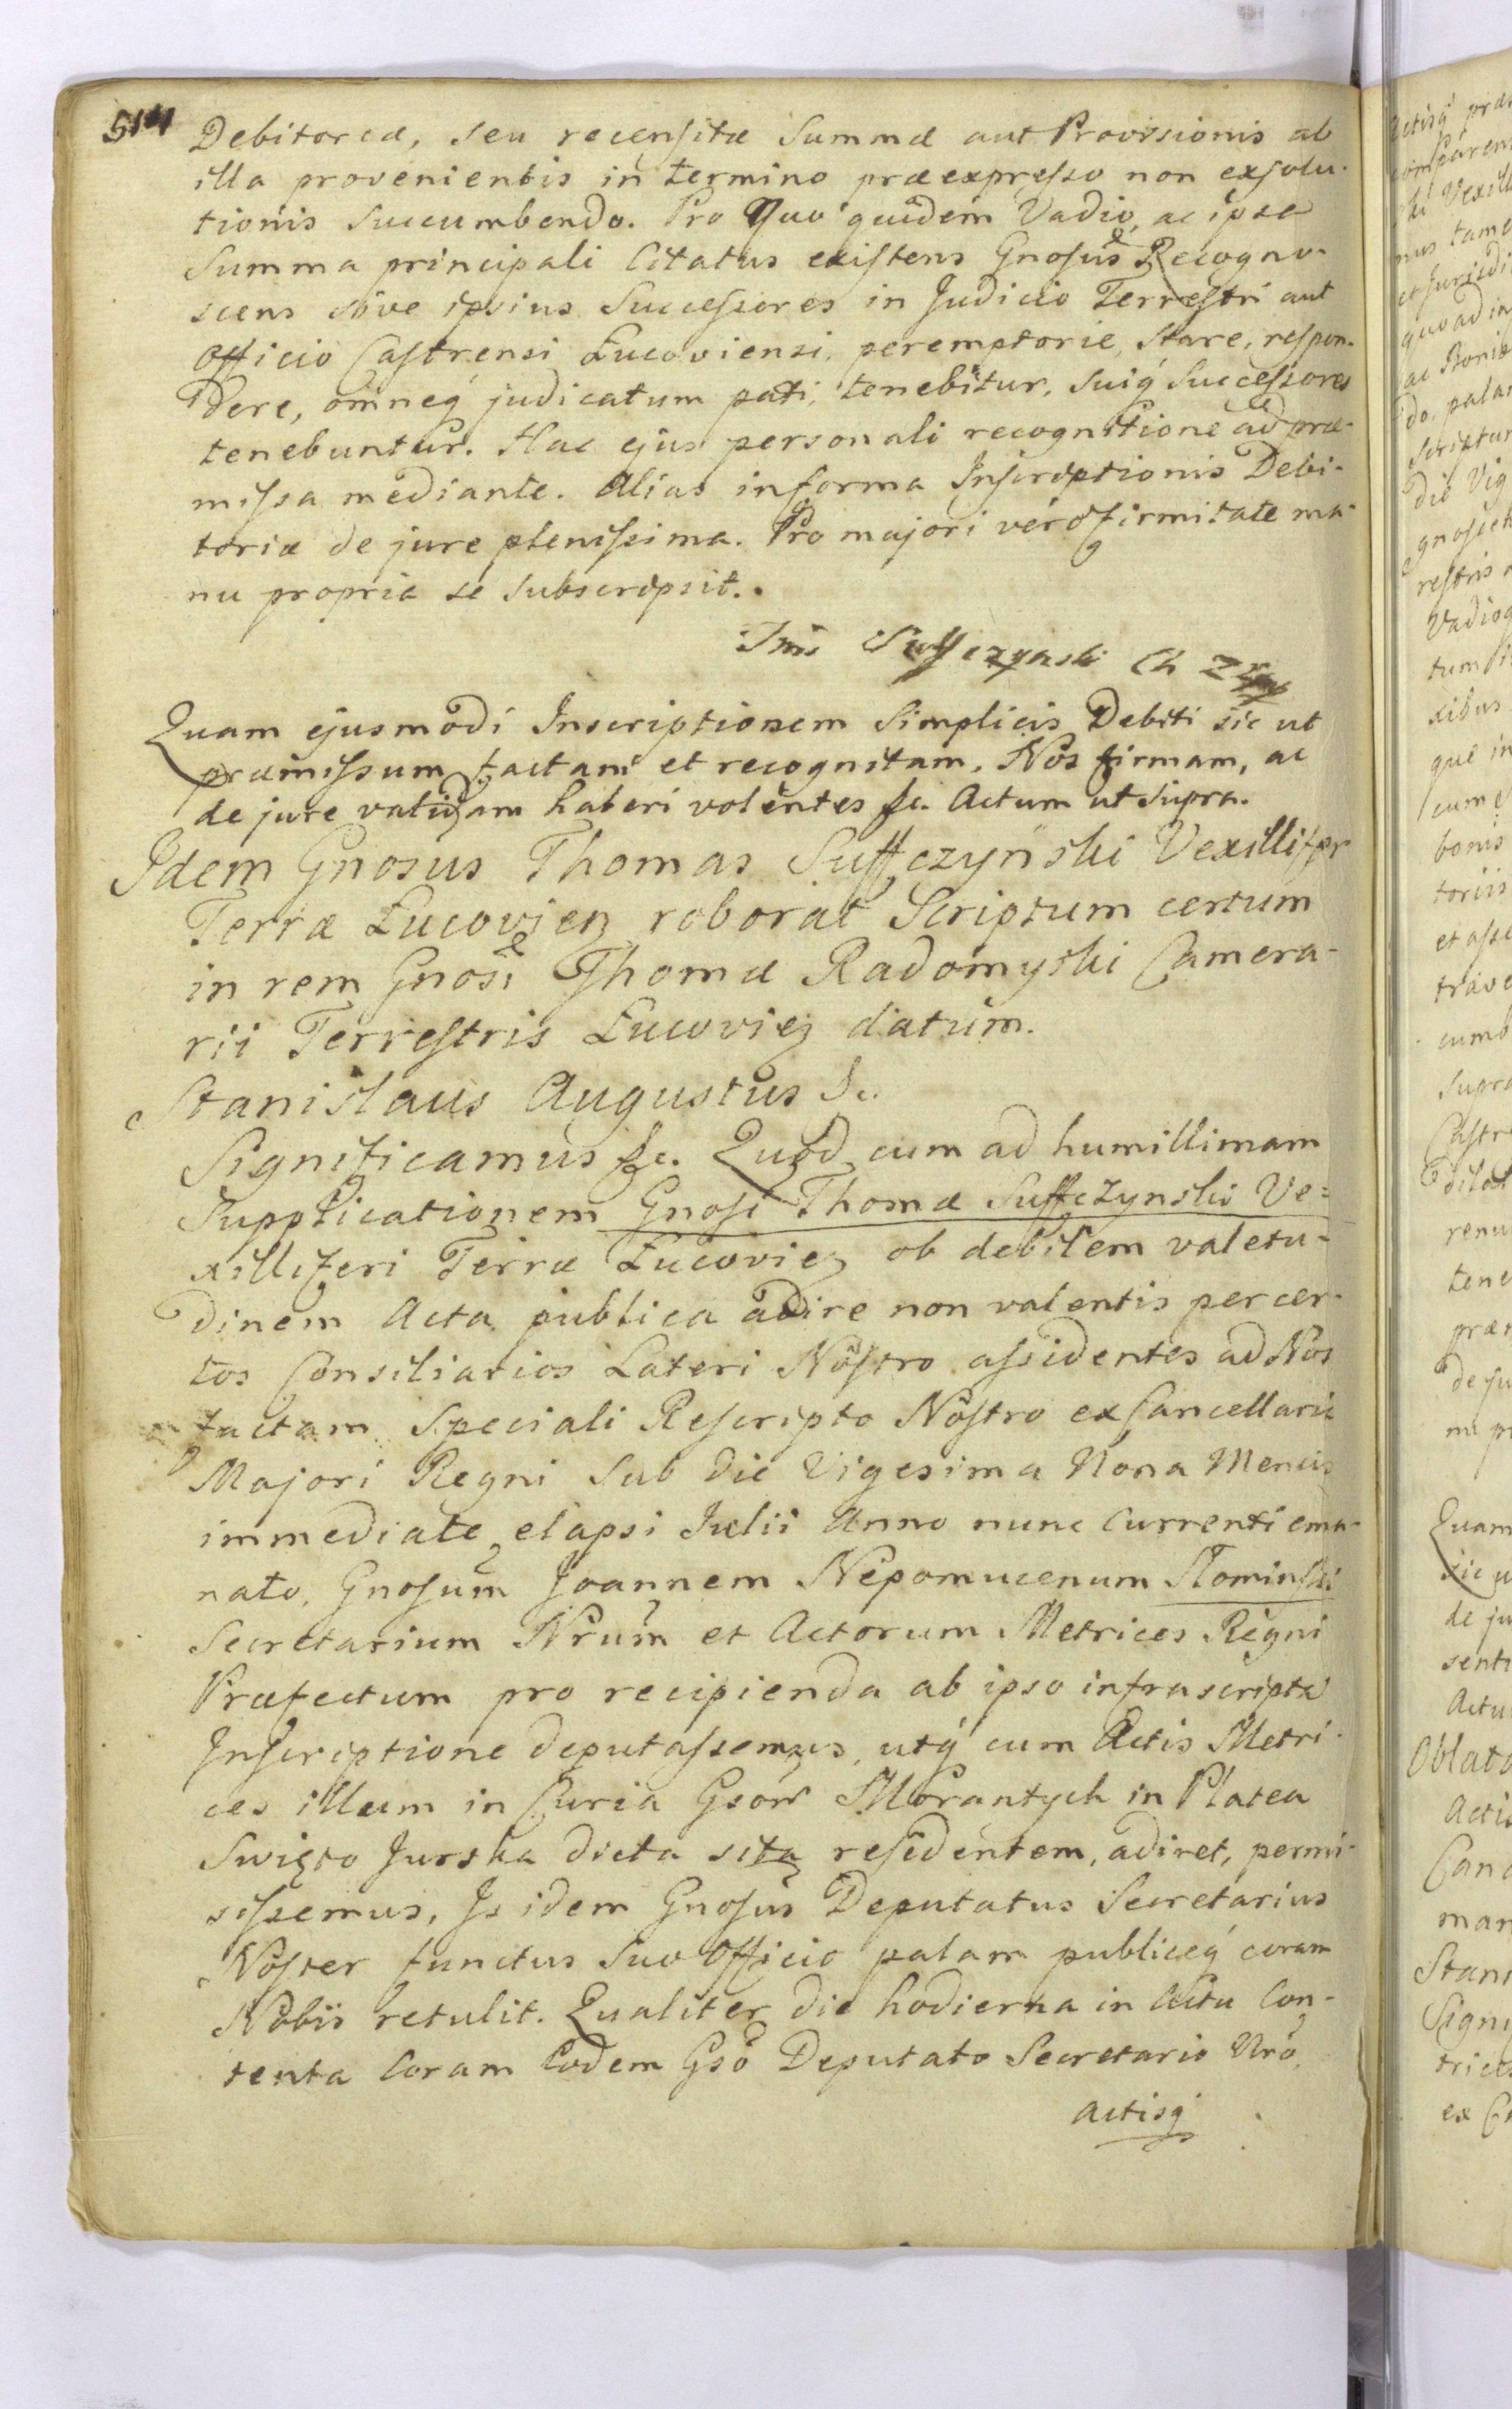 514
Debitoreæ, seu recensitæ Summæ aut Provisionis ab
illa provenientis in termino præexpresso non exsolu-
tionis succumbendo. Pro Quo quidem Vadio, ac ipsa
Summa principali Citatus existens Gnosus Recogno-
scens sive ipsius Successores in Judicio Terrestri aut
Officio Castrensi Łucoviensi, peremptorie, stare, respon-
dere, omneq́ judicatum pati, tenebitur, suiq́ Successores
tenebuntur. Hac ejus personali recognitione ad præ-
missa mediante. Alias in forma Inscriptionis Debi-
toriæ de jure plenissima. Pro majori vero firmitate ma-
nu propria se subscripsit.
Suffczynski Ch Z
Quam ejusmodi Inscriptionem Simplicis Debiti sic ut
præmissum factam et recognitam, Nos firmam, ac
de jure validam haberi volentes &c. Actum ut supra.
Idem Gnosus Thomas Suffczyński Vexillifer
Terræ Łucovien roborat Scriptum certum
in rem Gnosi Thomæ Radomyski Camera-
rii Terrestris Łucovien datum.
Stanislaus Augustus &c.
Significamus &c. Quod cum ad humillimam
Supplicationem Gnosi Thomæ Suffczynski Ve=
xilliferi Terræ Łucovien ob debilem valetu-
dinem Acta publica adire non valentis per cer-
tos Consiliarios Lateri Nostro assidentes ad Nos
factam Speciali Rescripto Nostro ex Cancellaria
Majori Regni sub die Vigesima Nona Mensis
immediate elapsi Julii Anno nunc Currenti ema-
nato, Gnosum Joannem Nepomucenum Słominski
Secretarium Nrum et Actorum Metrices Regni
Præfectum pro recipienda ab ipso infrascripta
Inscriptione deputassemus, utq́ cum Actis Metri-
ces illum in Curia Gsorr Morantych in Platea
Swięto Jurska dicta sita residentem, adiret, permi-
sissemus, Is idem Gnosus Deputatus Secretarius
Noster functus suo Officio palam publiceq́ coram
Nobis retulit. Qualiter die hodierna in Actu Con-
tenta Coram Eodem Gso Deputato Secretario Nro
actisq́